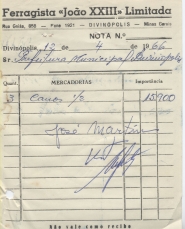 Ferragista «João XXIII» Limitada
Rua Goiás, - Fone 1921 - DIVINÓPOLIS - Minas Gerais
NOTA N.º
Divinópolis, 12 de 4 de 1966
Sr. Prefeitura Municipal Divinópolis
Quant. MERCADORIAS Importância
3 Canos 15900
José Martins
Não vale como recibo